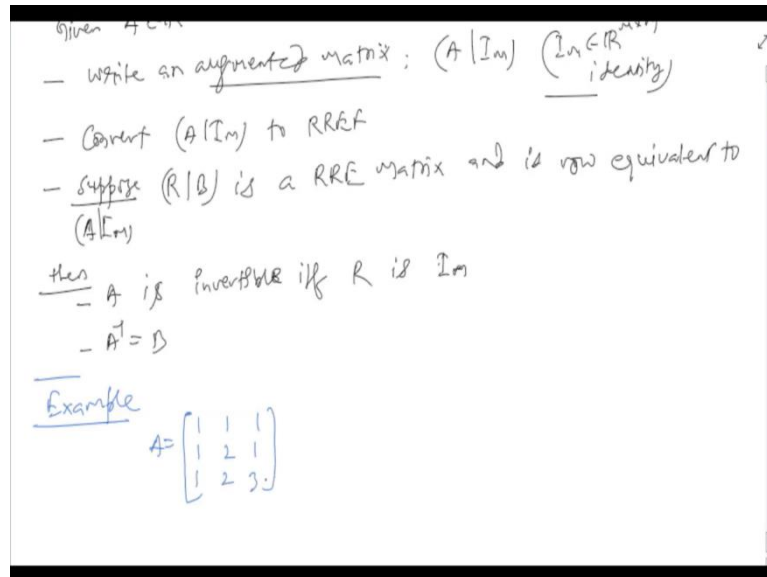 Given A ∈ ℝ
- Write an augmented matrix : (A | Im) (Im ∈ ℝ^mxm
identity)
- Convert (A|Im) to RREF
- Suppose (R|B) is a RRE Matrix and is row equivalent to
(A|Im)
then
- A is invertible iff R is Im
- A^-1 = B
Example
A= [1 1 1
1 2 1
1 2 3.]